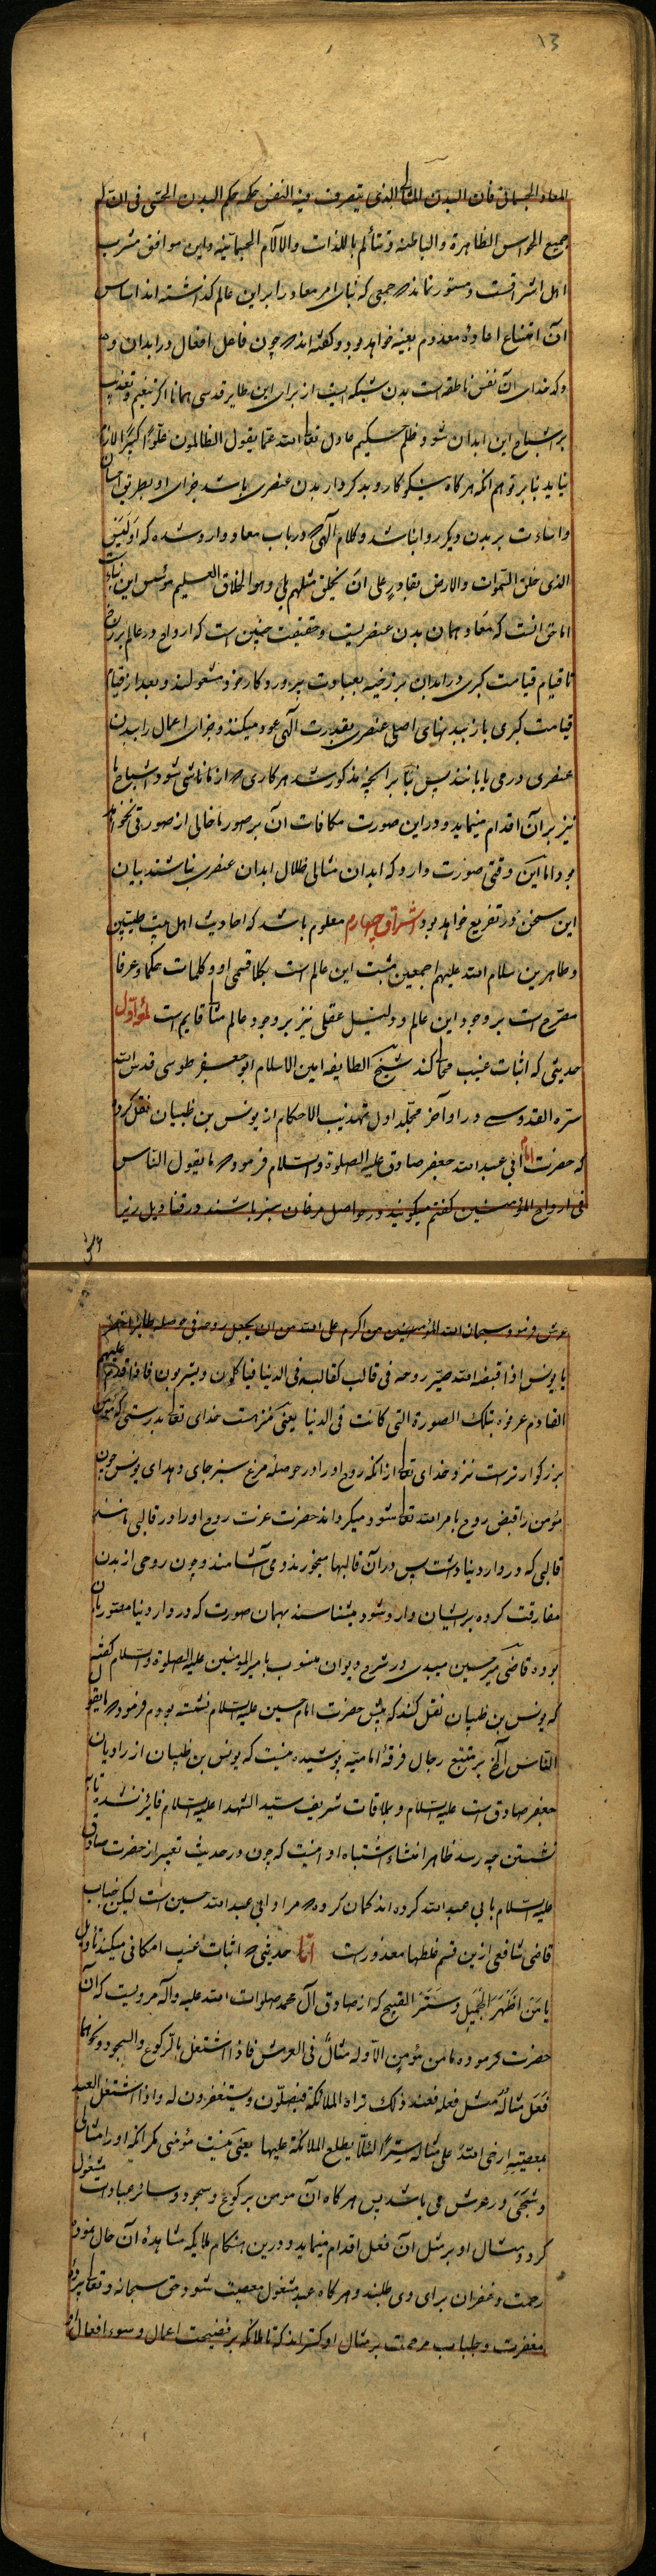 ۱۳
المعاد الجسمانی فان البدن المثالی الذی یتصرف فیه النفس حکمه حکم البدن الحسّی فی ان له
جمیع الحواس الظاهرة والباطنة وتتألم باللذات والآلام الجسمانیّه واین موافق مشرب
اهل اشراقست ومستور نماند که جمعی که بنای امر معاد را بر این عالم گذاشته اند اساس
آن امتناع اعادهٔ معدوم بعینه خواهد بود وگفته اند که چون فاعل افعال در ابدان
که خدای آن نفس ناطقه است بدن شبکه ایست از برای این طایر قدسی همانا اگر تنعیم وتعذیب
بر اشباح این ابدان شود ظلم حکیم عادل تعالی الله عمّا یقول الظالمون علوّا کبیرا لازم
نیاید بنا بر توهم انکه هرگاه نیکوکار وبدکردار بدن عنصری باشد جزای او بطریق احسان
واساءت بر بدن دیگر روا نباشد وکلام آلهی که در باب معاد وارد شده که اولیس
الذی خلق السّموات والارض بقادرٍ علی ان یخلق مثلهم بلی وهو الخلاق العلیم مؤسس این بناست
اما حق انست که معاد همان بدن عنصریست وحقیقت چنین است که ارواح در عالم برزخ
تا قیام قیامت کبری در ابدان برزخیه بعبادت پروردکار خود مشغولند وبعد از قیام
قیامت کبری باز ببدنهای اصلی عنصری بقدرت آلهی عود میکنند وجزای اعمال را ببدن
عنصری درمی یابند پس بنا بر آنچه مذکور شد هر کاری که از ما ناشی شود اشباح ما
نیز بر آن اقدام مینماید ودر این صورت مکافات آن بر صور ما خالی از صورتی نخواهد
بود اما این وقتی صورت دارد که ابدان مثالی ظلال ابدان عنصری باشند بیان
این سخن در تفریع خواهد بود اشراق چهارم معلوم باشد که احادیث اهل بیت طیبین
وطاهرین سلام الله علیهم اجمعین مثبت این عالم است بکلا قسمی او وکلمات حکما وعرفا
مصرّح است بر وجود این عالم ودلیل عقلی نیز بر وجود عالم مثال قایم است اول
حدیثی که اثبات غیب محالی کند شیخ الطایفه امین الاسلام ابو جعفر طوسی قدس الله
سرّه القدوسی در اواخر مجلّد اول تهذیب الاحکام از یونس بن ظبیان نقل کرده
که حضرت امام ابی عبد الله جعفر صادق علیه الصلوة والسلام فرمود که ما یقول الناس
فی ارواح المؤمنین کفتم میکویند در حواصل مرغان سبز باشند در قنادیل زیر
عرش فرمود سبحان الله المؤمنین من اکرم علی الله من ان یجعل روحه فی حوصله طایر اخضر
یا یونس اذا قبضه الله صیّر روحه فی قالب کقالبه فی الدنیا فیاکلون ویشربون فاذا قدم علیهم
القادم عرفوه بتلک الصورة التی کانت فی الدنیا یعنی منزهست خدای تعالی بدرستی که مؤمن
بزرکوارترست نزد خدای تعالی از انکه روح او را در حوصلهٔ مرغ سبز جای دهد ای یونس چون
مؤمن را قبض روح بامر الله تعالی شود میکرداند حضرت عزت روح او را در قالبی مانند
قالبی که در دار دنیا داشت پس در آن قالبها میخورند ومی آشامند وچون روحی از بدن
مفارقت کرده بر ایشان وارد شود میشناسند بهمان صورت که در دار دنیا مصوّر بان
بوده قاضی میر حسین میبدی در شرح دیوان منسوب بامیر المؤمنین علیه الصلوة والسلام کفته
که یونس بن ظبیان نقل کند که پیش حضرت امام حسین علیه السلام نشسته بودم فرمود که ما یقول
الناس الخ بر متتبع رجال فرقهٔ امامیّه پوشیده نیست که یونس بن ظبیان از راویان
جعفر صادق است علیه السلام وبملاقات شریف سیّد الشهدا علیه السلام فایز نشد تا به
نشستن چه رسد ظاهرا منشاء اشتباه او اینست که چون در حدیث تعبیر از حضرت صادق
علیه السلام بابی عبد الله کرده اند کمان کرده که مراد ابی عبد الله حسین است لیکن جناب
قاضی شافعی ازین قسم غلطها معذورست اما حدیثی که اثبات غیب امکانی میکند تاویل
یا من اظهر الجمیل وستر القبیح که از صادق آل محمد صلوات الله علیه وآله مرویست که آن
حضرت فرموده ما من مؤمن الّا وله مثالٌ فی العرش فاذا اشتغل بالرکوع والسجود ونحوهما
فعل مثاله مثل فعله فعند ذلک تراه الملائکة فیصلّون ویستغفرون له واذا اشتغل العبد
بمعصیته ارخی الله علی مثاله سترًا لئلّا یطلع الملائکة علیها یعنی نیست مؤمنی مکر انکه او را مثالی
وشبحی در عرش می باشد پس هرکاه آن مؤمن برکوع وسجود وسایر عبادت مشغول
کردد مثال او بر مثل آن فعل اقدام مینماید ودرین هنکام ملایکه مشاهدهٔ آن حال نموده
رحمت وغفران برای وی طلبند وهرکاه عبد مشغول معصیت شود حق سبحانه وتعالی پردهٔ
مغفرت وجلباب مرحمت بر مثال او کستراند که تا ملائکه بر فضیحت اعمال وسوء افعال او